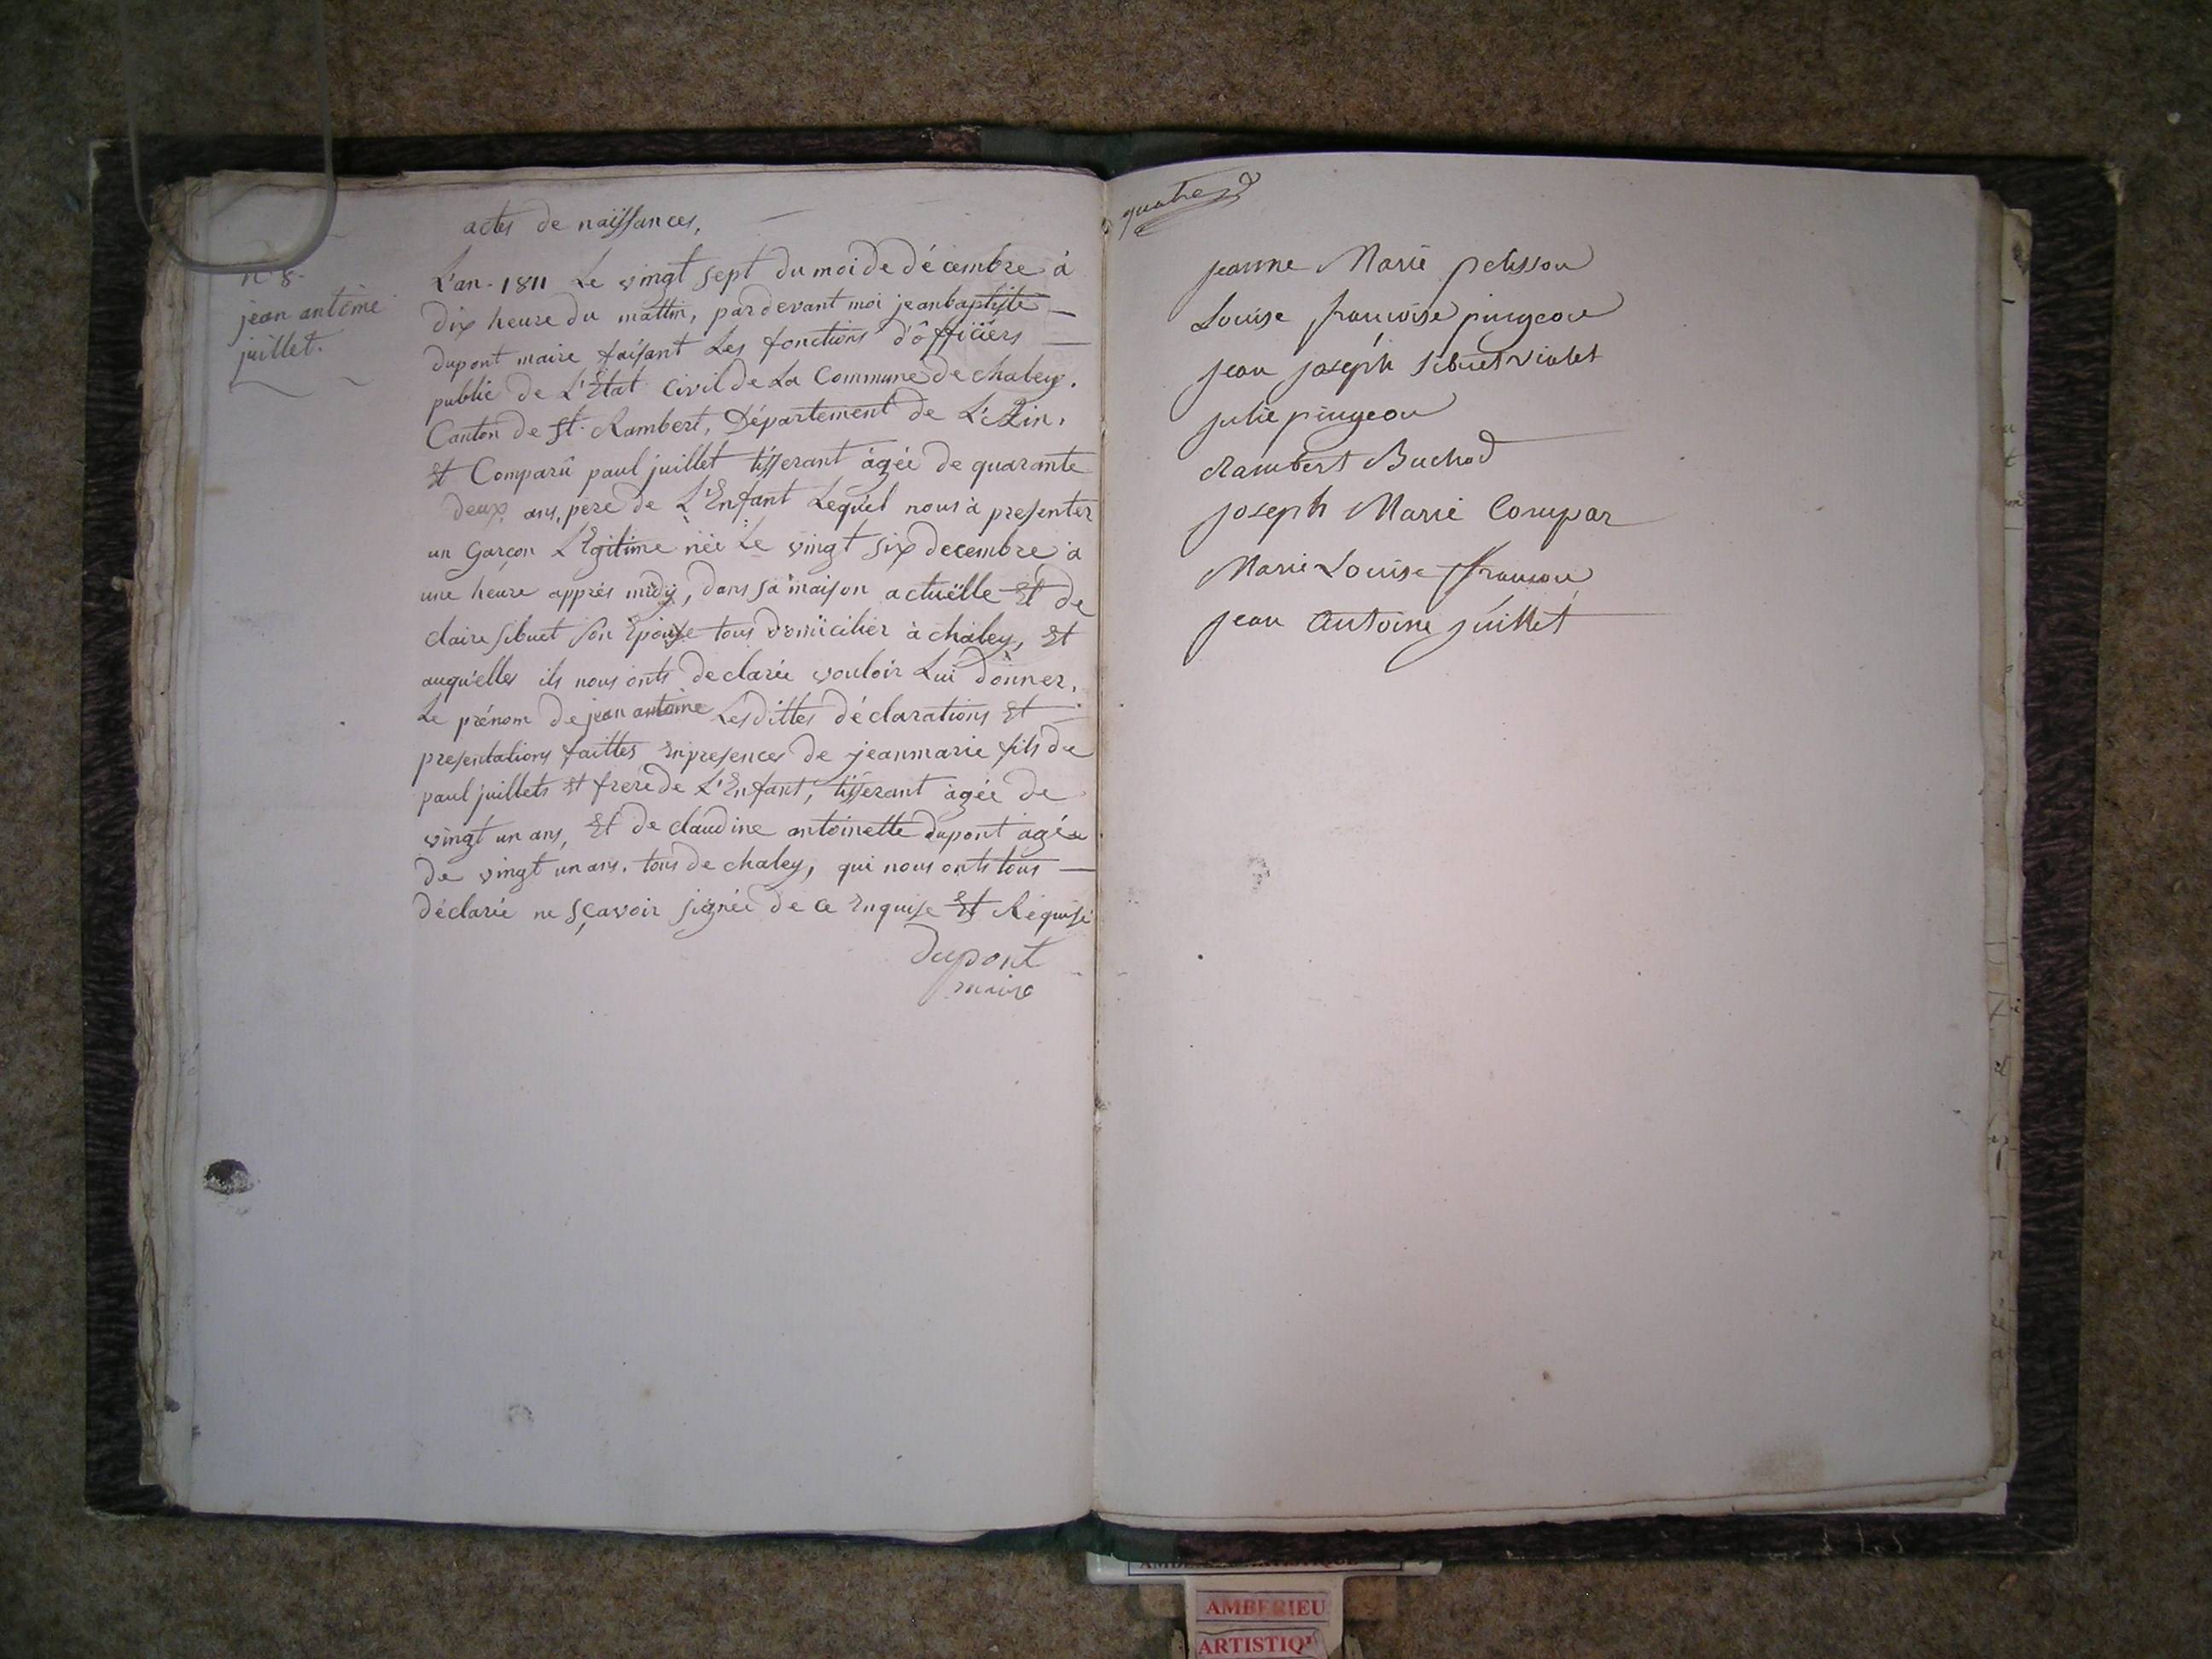 actes de naissances,
n° 8.
jean antoine
juillet.
L'an 1811 Le vingt sept du moi de décembre à
dix heure du mattin, pardevant moi jeanbaptiste
dupont maire faisant Les fonctions d'ôfficiers
public de L'Etat Civil de La Commune de chaley.
Canton de St. Rambert, Département de L'Ain.
Et Comparû paul juillet tisserant âgée de quarante
deux ans, pere de L'Enfant Lequel nous à presenter
un Garçon L'Egitime née Le vingt six decembre a
une heure apprés midy, dans sa maison actuëlle Et de
claire sibuet son Epouse tous domicilier à chaley, Et
auqu'elles ils nous onts declarée vouloir Lui donner.
Le prénom de jean antoine Lesdittes déclarations Et
presentations faittes Enpresences de jeanmarie fils de
paul juillets Et frere de L'Enfant, tisserant âgée de
vingt un ans, Et de claudine antoinette dupont agée
de vingt un ans. tous de chaley, qui nous onts tous
déclarée ne sçavoir signée de ce Enquise Et Réquise
dupont
maire
quatre
jeanne Marie pelisson
Louise françoise pingeon
jean joseph Sibuet violet
julie pingeon
Rambert Buchod
joseph Marie Compar
Marie Louise françon
jean Antoine juillet
AMBERIEU
ARTISTIQU